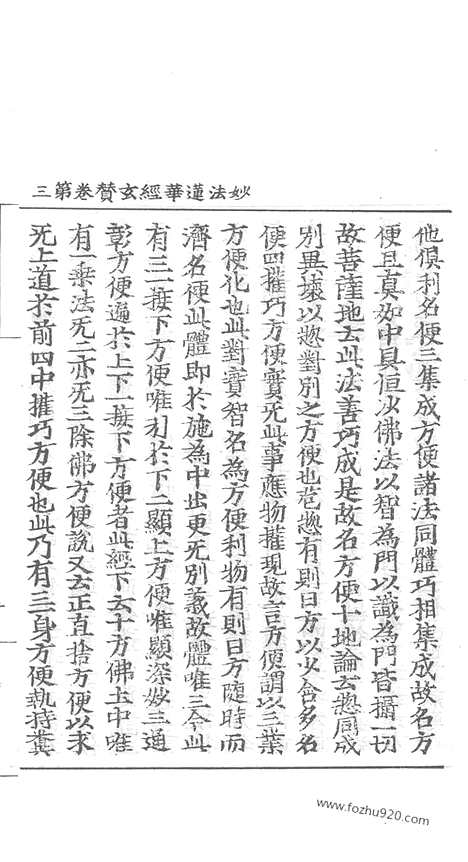 妙法蓮華經玄賛卷第三
他俱利名便三集成方便諸法同體巧相集成故名方
便且真如中具恒沙佛法以智為門以識為門皆攝一切
故菩薩地云此法善巧成是故名方便十地論云惣同成
別異壞以惣對別之方便也苞惣有則曰方以少會多名
便四攉巧方便實无此事應物攉現故言方便謂以三業
方便化也此對實智名為方便利物有則曰方隨時而
濟名便此體即於施為中出更无別義故體唯三今此
有三一接下方便唯引於下二顯上方便唯顯深妙三通
彰方便遍於上下一接下方便者此經下云十方佛土中唯
有一乘法无二亦无三除佛方便說又云正直捨方便以求
无上道於前四中攉巧方便也此乃有三身方便執持糞
www.fozhu920.com